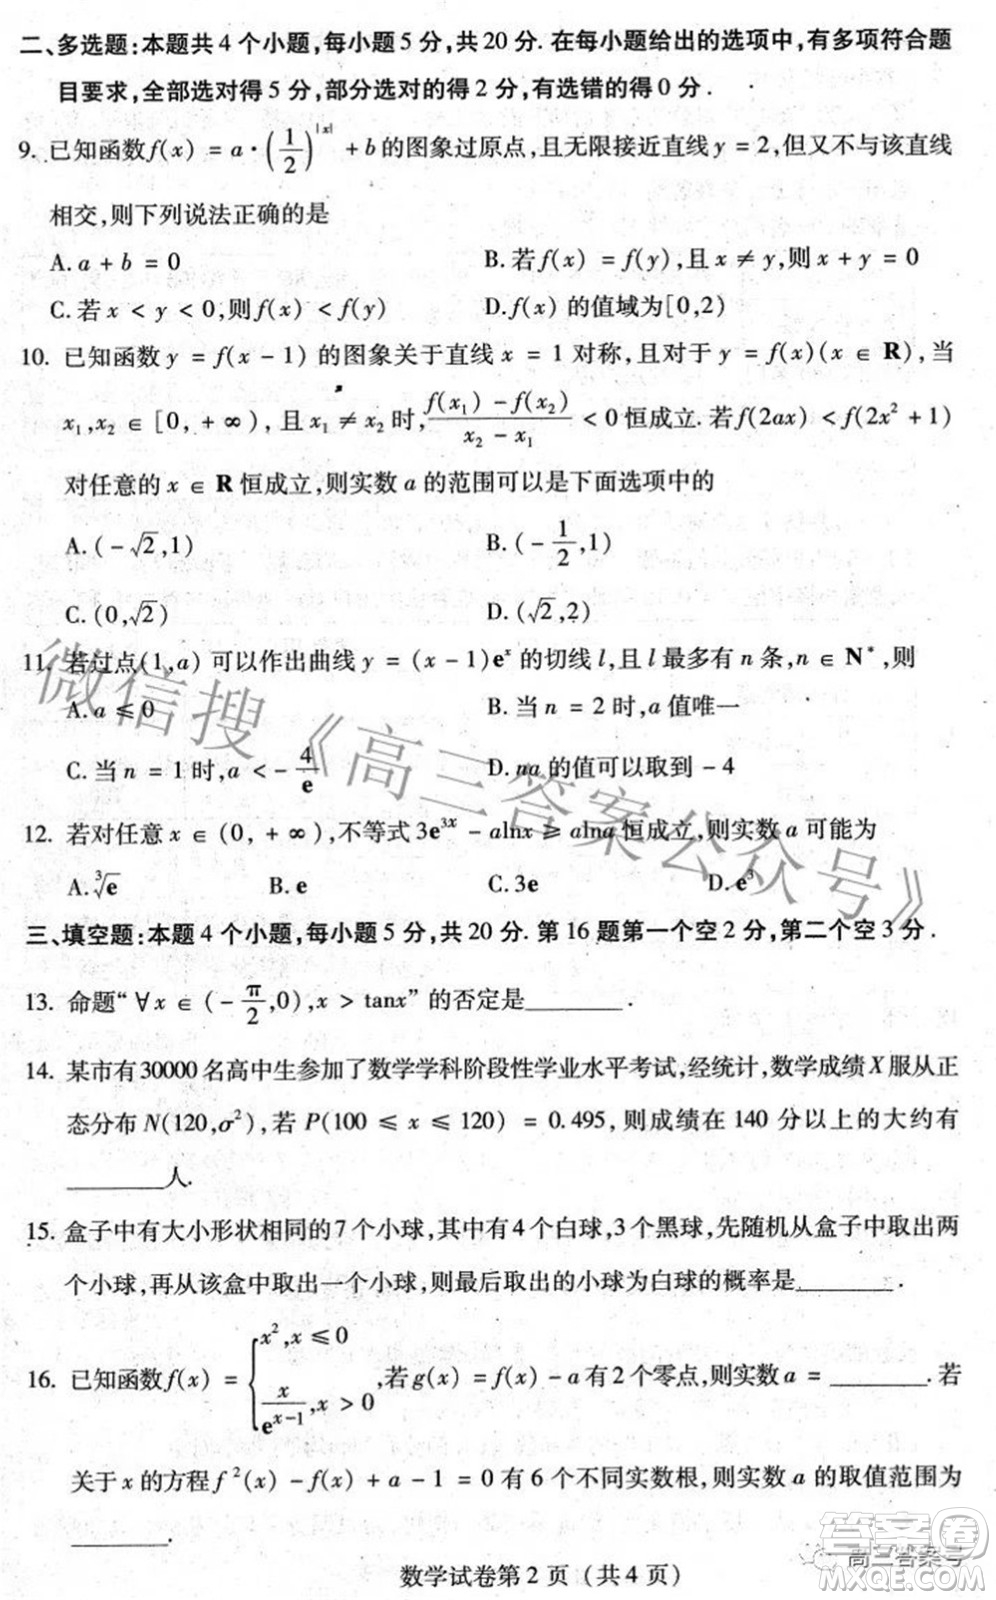 二、多选题:本题共4个小题,每小题5分,共20分.在每小题给出的选项中,有多项符合题
目要求,全部选对得5分,部分选对的得2分,有选错的得0分.
9. 已知函数f(x) = a·(1/2)^|x| + b的图象过原点,且无限接近直线y = 2,但又不与该直线
相交,则下列说法正确的是
A. a + b = 0 B. 若f(x) = f(y),且x ≠ y,则x + y = 0
C. 若x < y < 0,则f(x) < f(y) D. f(x)的值域为[0,2)
10. 已知函数y = f(x − 1)的图象关于直线x = 1对称,且对于y = f(x)(x ∈ R),当
x₁,x₂ ∈ [0, + ∞),且x₁ ≠ x₂时,(f(x₁) − f(x₂))/(x₂ − x₁) < 0恒成立.若f(2ax) < f(2x² + 1)
对任意的x ∈ R恒成立,则实数a的范围可以是下面选项中的
A. (−√2,1) B. (−1/2,1)
C. (0,√2) D. (√2,2)
11. 若过点(1,a)可以作出曲线y = (x − 1)eˣ的切线l,且l最多有n条,n ∈ N*,则
A. a ≤ 0 B. 当n = 2时,a值唯一
C. 当n = 1时,a < −4/e D. na的值可以取到−4
12. 若对任意x ∈ (0, + ∞),不等式3e^{3x} − alnx ≥ alna恒成立,则实数a可能为
A. ∛e B. e C. 3e D. e³
三、填空题:本题4个小题,每小题5分,共20分.第16题第一个空2分,第二个空3分.
13. 命题“∀x ∈ (−π/2,0),x > tanx”的否定是________.
14. 某市有30000名高中生参加了数学学科阶段性学业水平考试,经统计,数学成绩X服从正
态分布N(120,σ²),若P(100 ≤ x ≤ 120) = 0.495,则成绩在140分以上的大约有
________人.
15. 盒子中有大小形状相同的7个小球,其中有4个白球,3个黑球,先随机从盒子中取出两
个小球,再从该盒中取出一个小球,则最后取出的小球为白球的概率是________.
16. 已知函数f(x) = {x²,x ≤ 0; x/e^{x−1},x > 0,若g(x) = f(x) − a有2个零点,则实数a = ________.若
关于x的方程f²(x) − f(x) + a − 1 = 0有6个不同实数根,则实数a的取值范围为
________.
数学试卷第2页(共4页)
微信搜《高三答案公众号》
高三答案号
答案圈
MXQE.COM